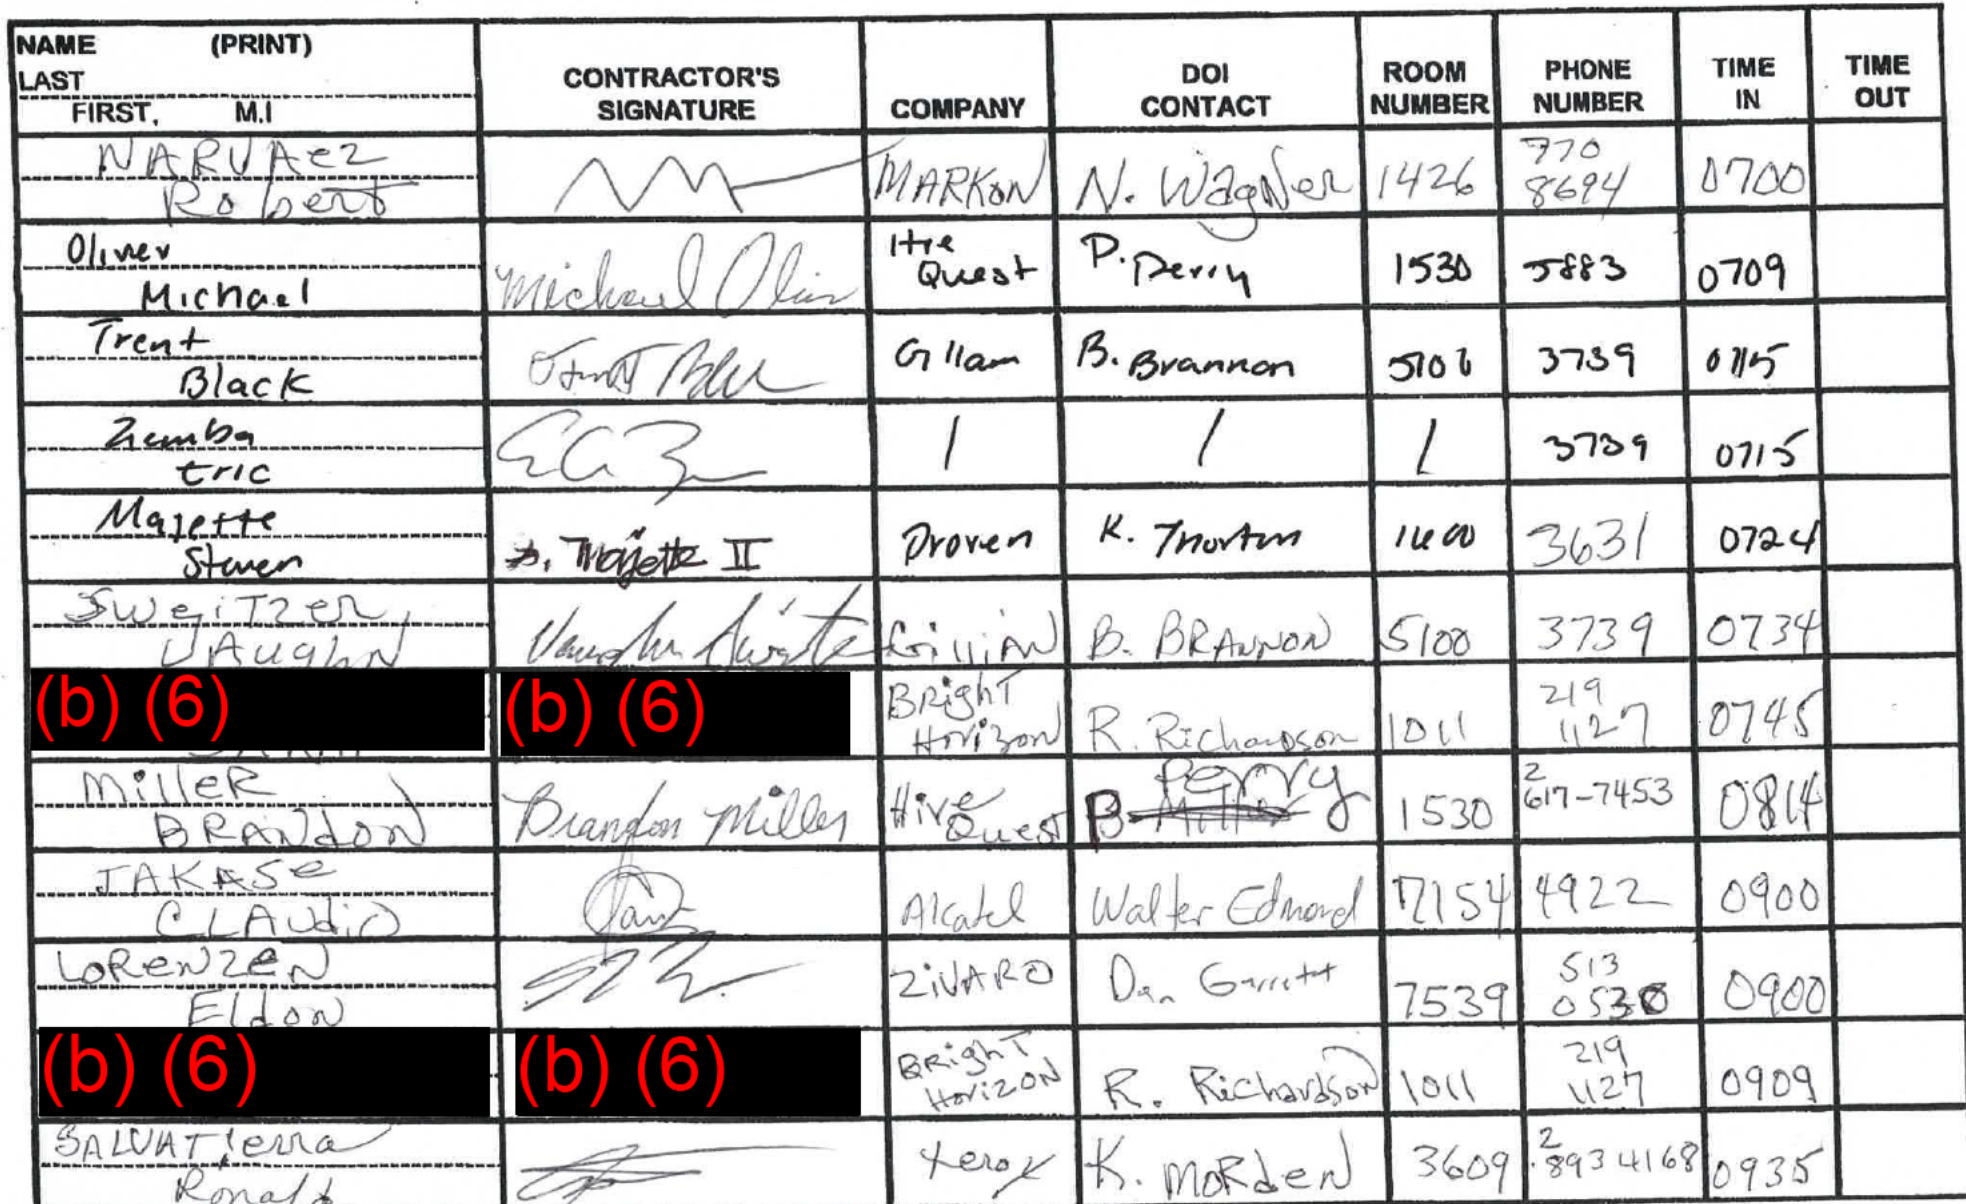 NAME (PRINT)
LAST
FIRST, M.I
CONTRACTOR'S
SIGNATURE
COMPANY
DOI
CONTACT
ROOM
NUMBER
PHONE
NUMBER
TIME
IN
TIME
OUT
NARVAez
Robert
MARKON
N. WagNer
1426
770
8694
0700
Oliver
Michael
Michael
Quest
P. Perry
1530
5883
0709
Trent
Black
B. Brannon
3739
0715
Zemba
Eric
/
/
/
3739
0715
Majette
Steven
S. Majette II
Proven
K.
3631
0724
SweiTzer
VAughN
Vaughn
GilliAN
B. BRANNON
5100
3739
0734
(b) (6)
(b) (6)
BRighT
Horizon
R. Richardson
1011
219
1127
0745
MilleR
BRANdoN
Brandon Miller
Hive
Quest
Perry
1530
2
617-7453
0814
JAKASe
CLAUdio
Alcatel
Walter Edmond
7154
4922
0900
LoRenzeN
EldoN
ZiVARO
Dan Garrett
7539
513
0900
(b) (6)
(b) (6)
BRighT
HorizoN
R. Richardson
1011
219
1127
0909
SALVATierra
Ronald
Xerox
K. MoRden
3609
2
893 4168
0935